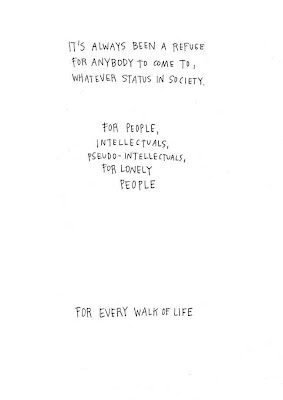 IT'S ALWAYS BEEN A REFUGE
FOR ANYBODY TO COME TO,
WHATEVER STATUS IN SOCIETY.
FOR PEOPLE,
INTELLECTUALS,
PSEUDO-INTELLECTUALS,
FOR LONELY
PEOPLE
FOR EVERY WALK OF LIFE